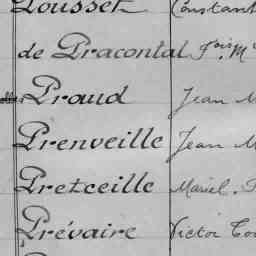 Pousset Constant
de Pracontal fois. M
Praud Jean M
Prenveille Jean M
Pretceille Marcel.
Prévaire Victor